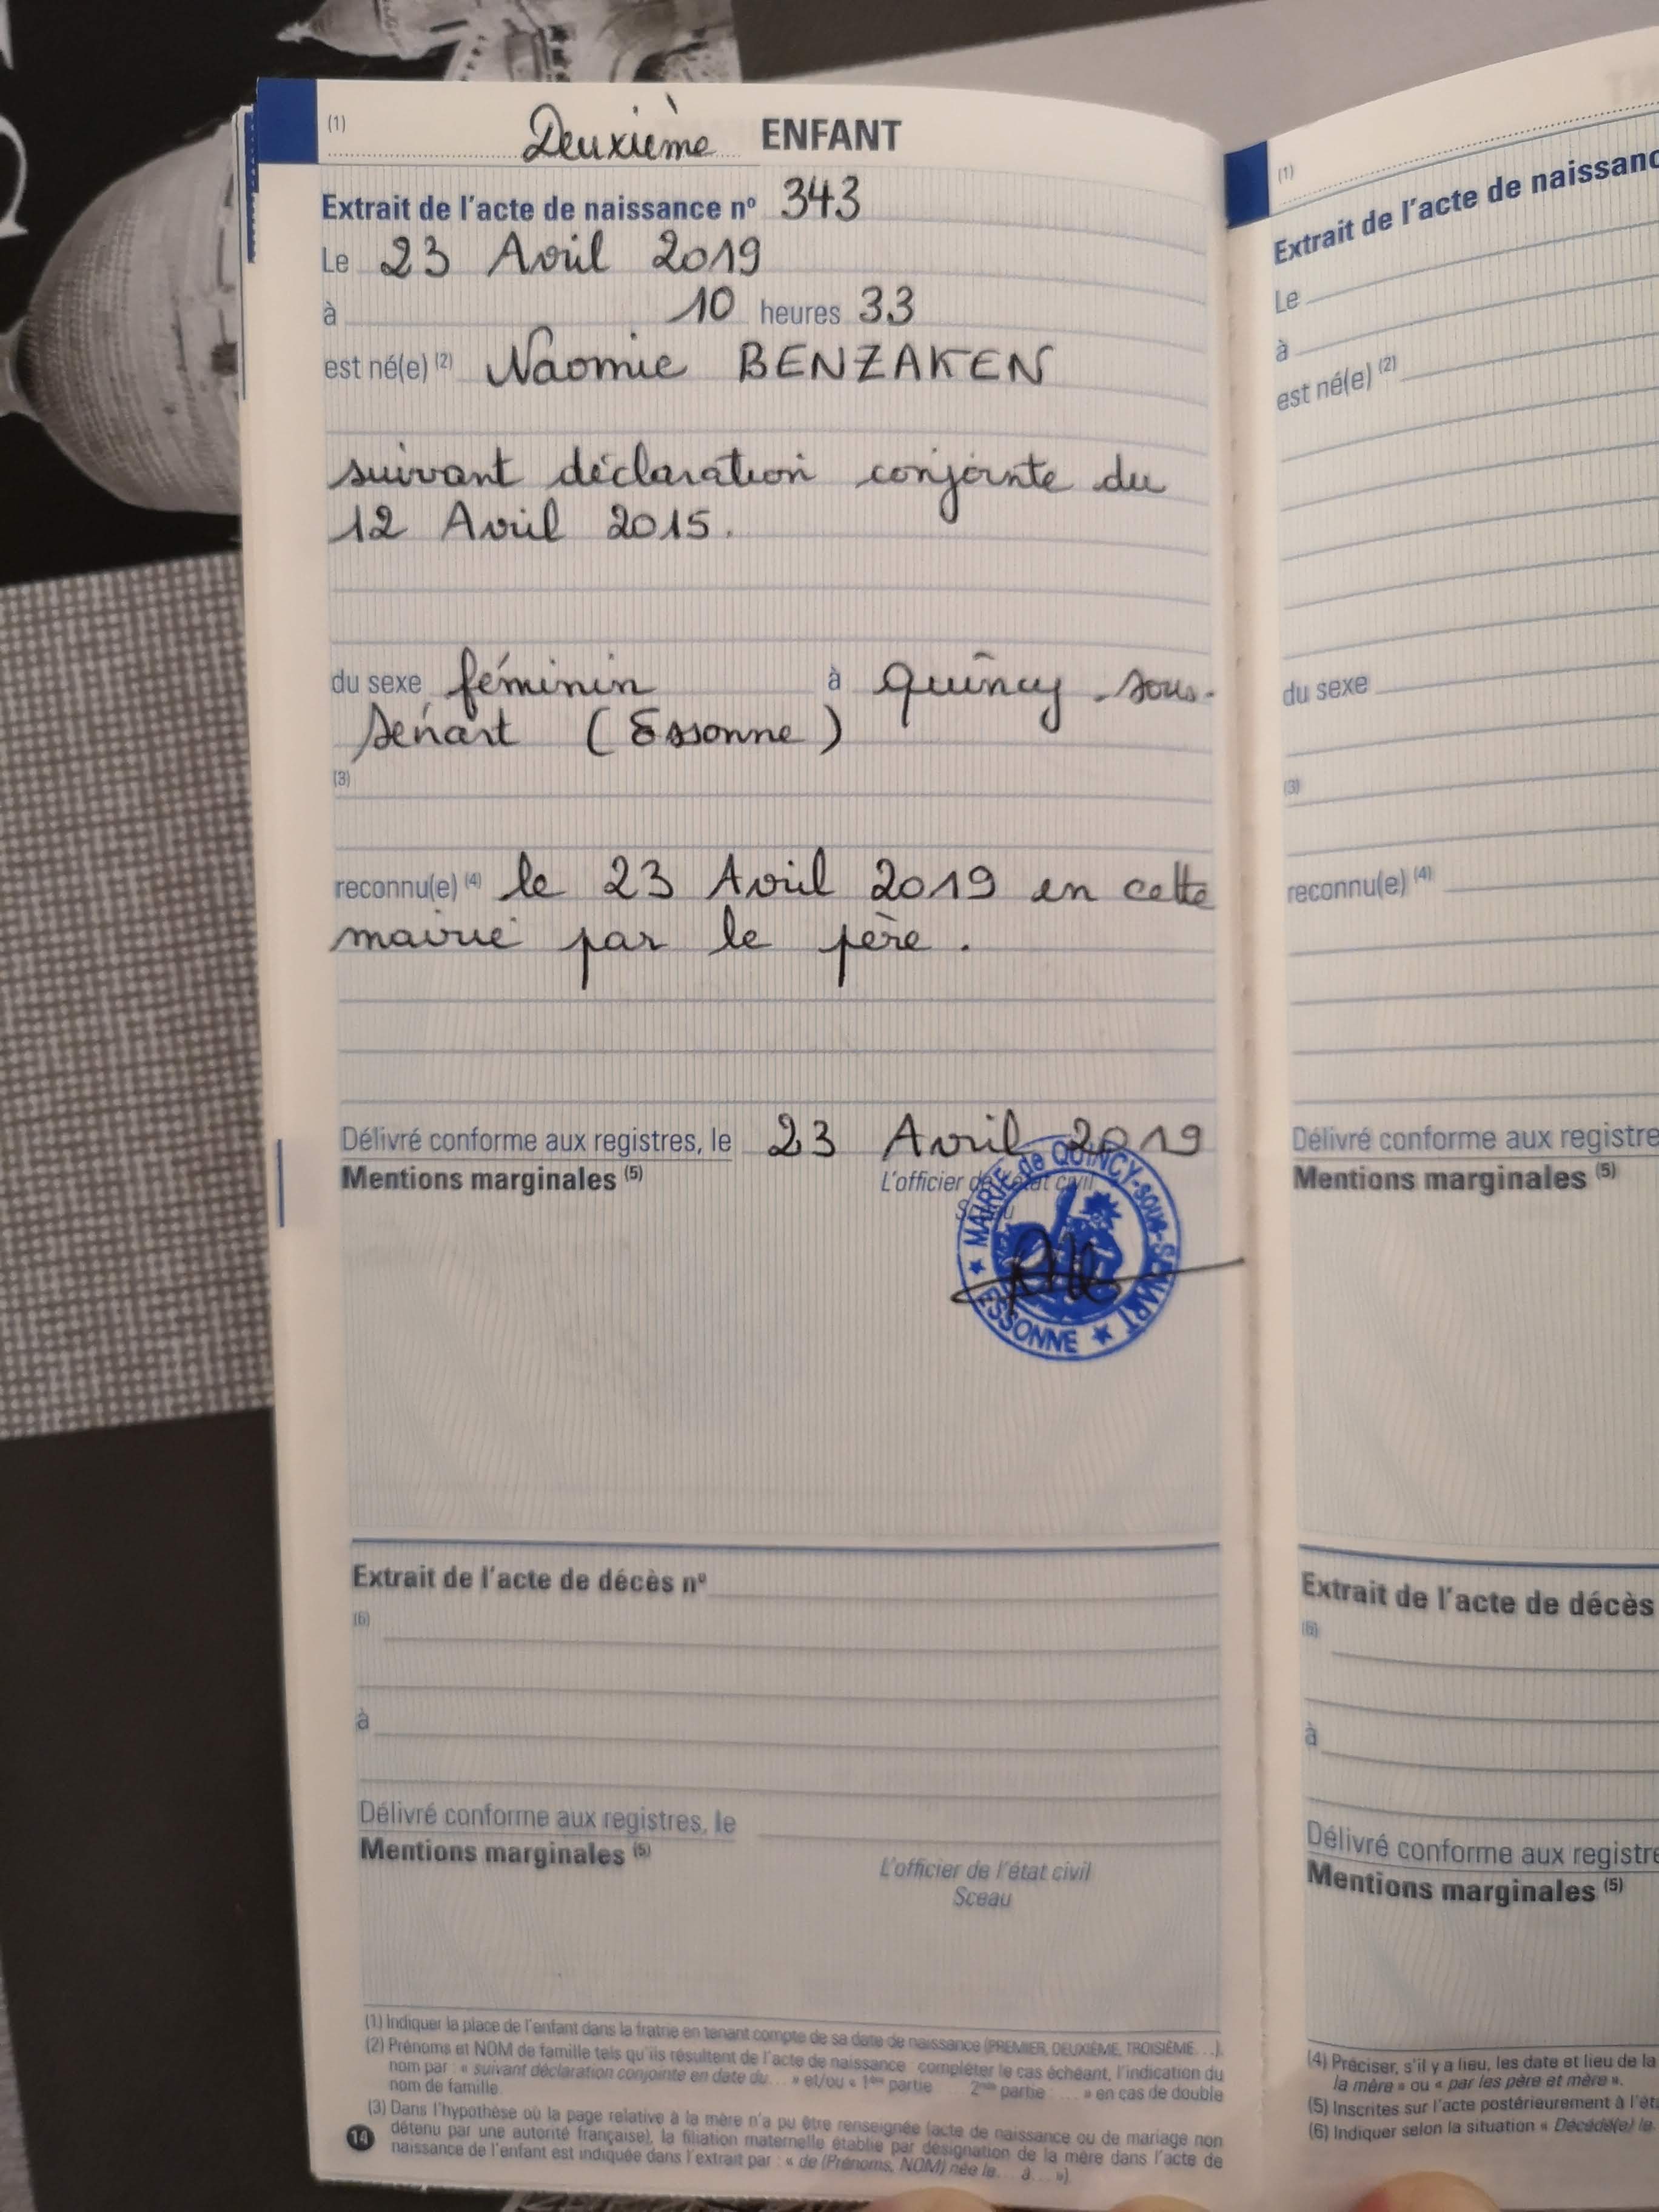 (1) Deuxième ENFANT
Extrait de l'acte de naissance nº 343
Le 23 Avril 2019
à 10 heures 33
est né(e) (2) Naomie BENZAKEN
suivant déclaration conjointe du
12 Avril 2015.
du sexe féminin à Quincy-sous-
Sénart (Essonne)
(3)
reconnu(e) (4) le 23 Avril 2019 en cette
mairie par le père.
Délivré conforme aux registres, le 23 Avril 2019
Mentions marginales (5)
L'officier de l'état civil
Sceau
MAIRIE de QUINCY-sous-SENART
ESSONNE
Extrait de l'acte de décès nº
(6)
à
Délivré conforme aux registres, le
Mentions marginales (5)
L'officier de l'état civil
Sceau
(1) Indiquer la place de l'enfant dans la fratrie en tenant compte de sa date de naissance (PREMIER, DEUXIÈME, TROISIÈME...).
(2) Prénoms et NOM de famille tels qu'ils résultent de l'acte de naissance compléter le cas échéant, l'indication du
nom par : « suivant déclaration conjointe en date du... » et/ou « 1ère partie ... 2nde partie : ... » en cas de double
nom de famille.
(3) Dans l'hypothèse où la page relative à la mère n'a pu être renseignée (acte de naissance ou de mariage non
détenu par une autorité française), la filiation maternelle établie par désignation de la mère dans l'acte de
naissance de l'enfant est indiquée dans l'extrait par : « de (Prénoms, NOM) née le... à... »)
14
(1)
Extrait de l'acte de naissanc
Le
à
est né(e) (2)
du sexe
(3)
reconnu(e) (4)
Délivré conforme aux registre
Mentions marginales (5)
Extrait de l'acte de décès
(6)
à
Délivré conforme aux registre
Mentions marginales (5)
(4) Préciser, s'il y a lieu, les date et lieu de la
la mère » ou « par les père et mère ».
(5) Inscrites sur l'acte postérieurement à l'ét
(6) Indiquer selon la situation « Décédé(e) le